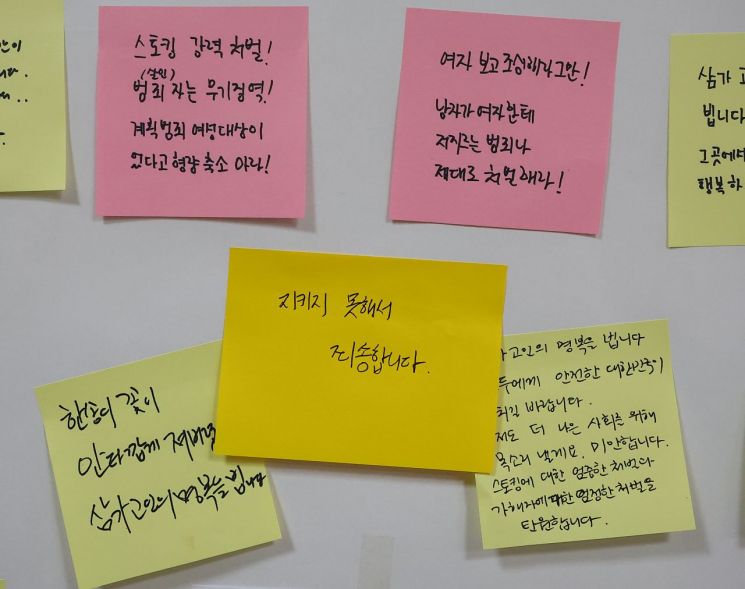 스토킹 강력 처벌!
(살인)
범죄자는 무기징역!
계획범죄 여성대상이
었다고 형량 축소 마라!
여자 보고 조심해라 그만!
남자가 여자한테
저지르는 범죄나
제대로 처벌해라!
삼가 고
빕니다
그곳에서
행복하
지키지 못해서
죄송합니다.
한송이 꽃이
안타깝게 져버렸
삼가 고인의 명복을 빕니다
가 고인의 명복을 빕니다
두에게 안전한 대한민국이
되길 바랍니다.
저도 더 나은 사회를 위해
목소리 낼게요. 미안합니다.
스토킹에 대한 엄중한 처벌과
가해자에 대한 엄정한 처벌을
탄원합니다.